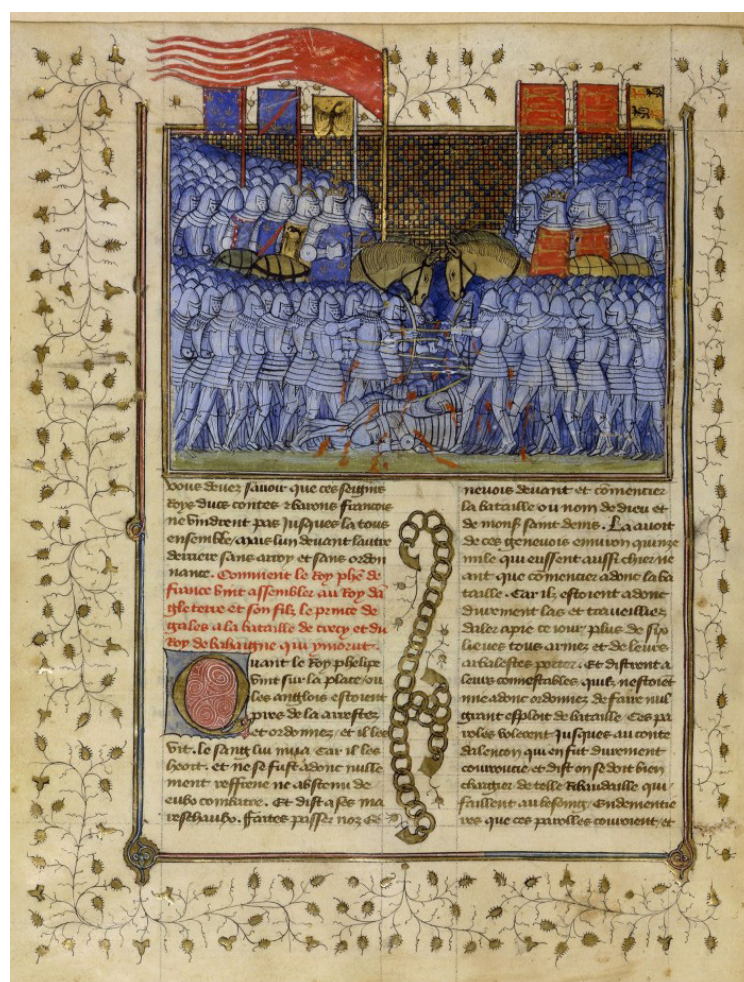 vous devez savoir que ces seigns
Roys ducs contes & barons francois
ne vindrent pas jusques la tous
ensemble mais lun devant lautre
derriere sans arroy et sans ordon
nance. Comment le Roy phe de
france vint assembler au Roy dā
gleterre et son filz le prince de
gales a la bataille de crecy et du
Roy de bahaigne qui y morut.
Quant le Roy phelipe
vint sur la place ou
les anglois estoient
pres de la arrestez
et ordonnez et il les
vit. le sang lui mua Car il les
heoit. et ne se fust adonc nulle
ment reffrene ne abstenu de
eulx combatre. Et dist a ses ma
reschaulx. faites passer noz Ge
nevois devant et cōmencier
la bataille ou nom de dieu et
de monsr saint denis. La avoit
de ces genevois environ quinze
mile qui eussent aussi chier ne
ant que cōmencier adonc la ba
taille. Car ilz estoient adonc
durement las et traveilliez
daler a pie ce jour plus de six
lieues tous armez et de leurs
arbalestes porter. Et distrent a
leurs connestables quilz nestoiēt
mie adonc ordonnez de faire nul
grant esploit de bataille Ces pa
roles volerent jusques au conte
dalencon qui en fut durement
courroucie et dist on se doit bien
chargier de telle Ribaudaille qui
faillent au besoing. Endementie
res que ces parolles couroient et